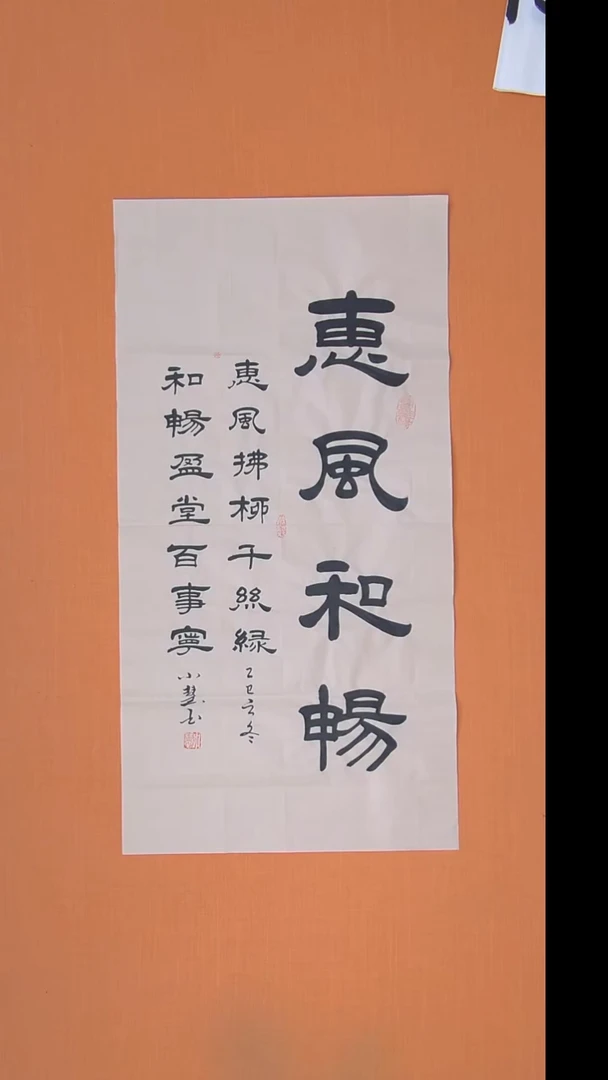 惠風和暢
惠風拂柳千絲緑
乙巳之冬
和暢盈堂百事寧
小慧书